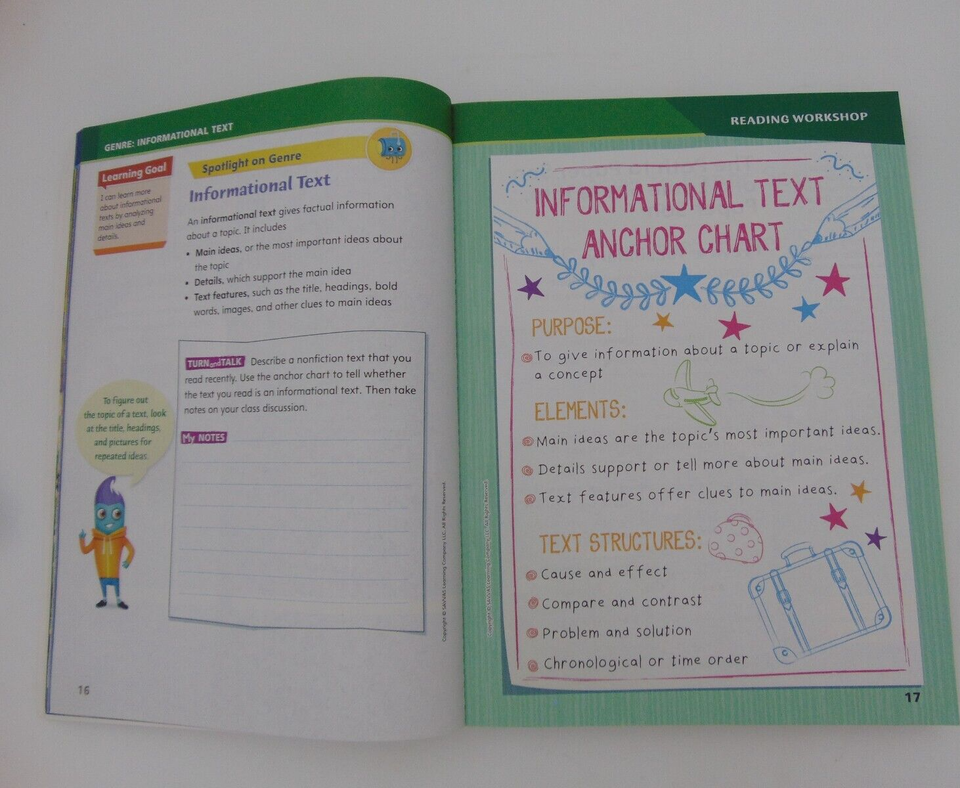 GENRE: INFORMATIONAL TEXT
Learning Goal
I can learn more
about informational
texts by analyzing
main ideas and
details.
Spotlight on Genre
Informational Text
An informational text gives factual information
about a topic. It includes
• Main ideas, or the most important ideas about
the topic
• Details, which support the main idea
• Text features, such as the title, headings, bold
words, images, and other clues to main ideas
TURN and TALK Describe a nonfiction text that you
read recently. Use the anchor chart to tell whether
the text you read is an informational text. Then take
notes on your class discussion.
My NOTES
To figure out
the topic of a text, look
at the title, headings,
and pictures for
repeated ideas.
Copyright © SAVVAS Learning Company LLC. All Rights Reserved.
16
READING WORKSHOP
INFORMATIONAL TEXT
ANCHOR CHART
PURPOSE:
To give information about a topic or explain
a concept
ELEMENTS:
Main ideas are the topic's most important ideas.
Details support or tell more about main ideas.
Text features offer clues to main ideas.
TEXT STRUCTURES:
Cause and effect
Compare and contrast
Problem and solution
Chronological or time order
Copyright © SAVVAS Learning Company LLC. All Rights Reserved.
17